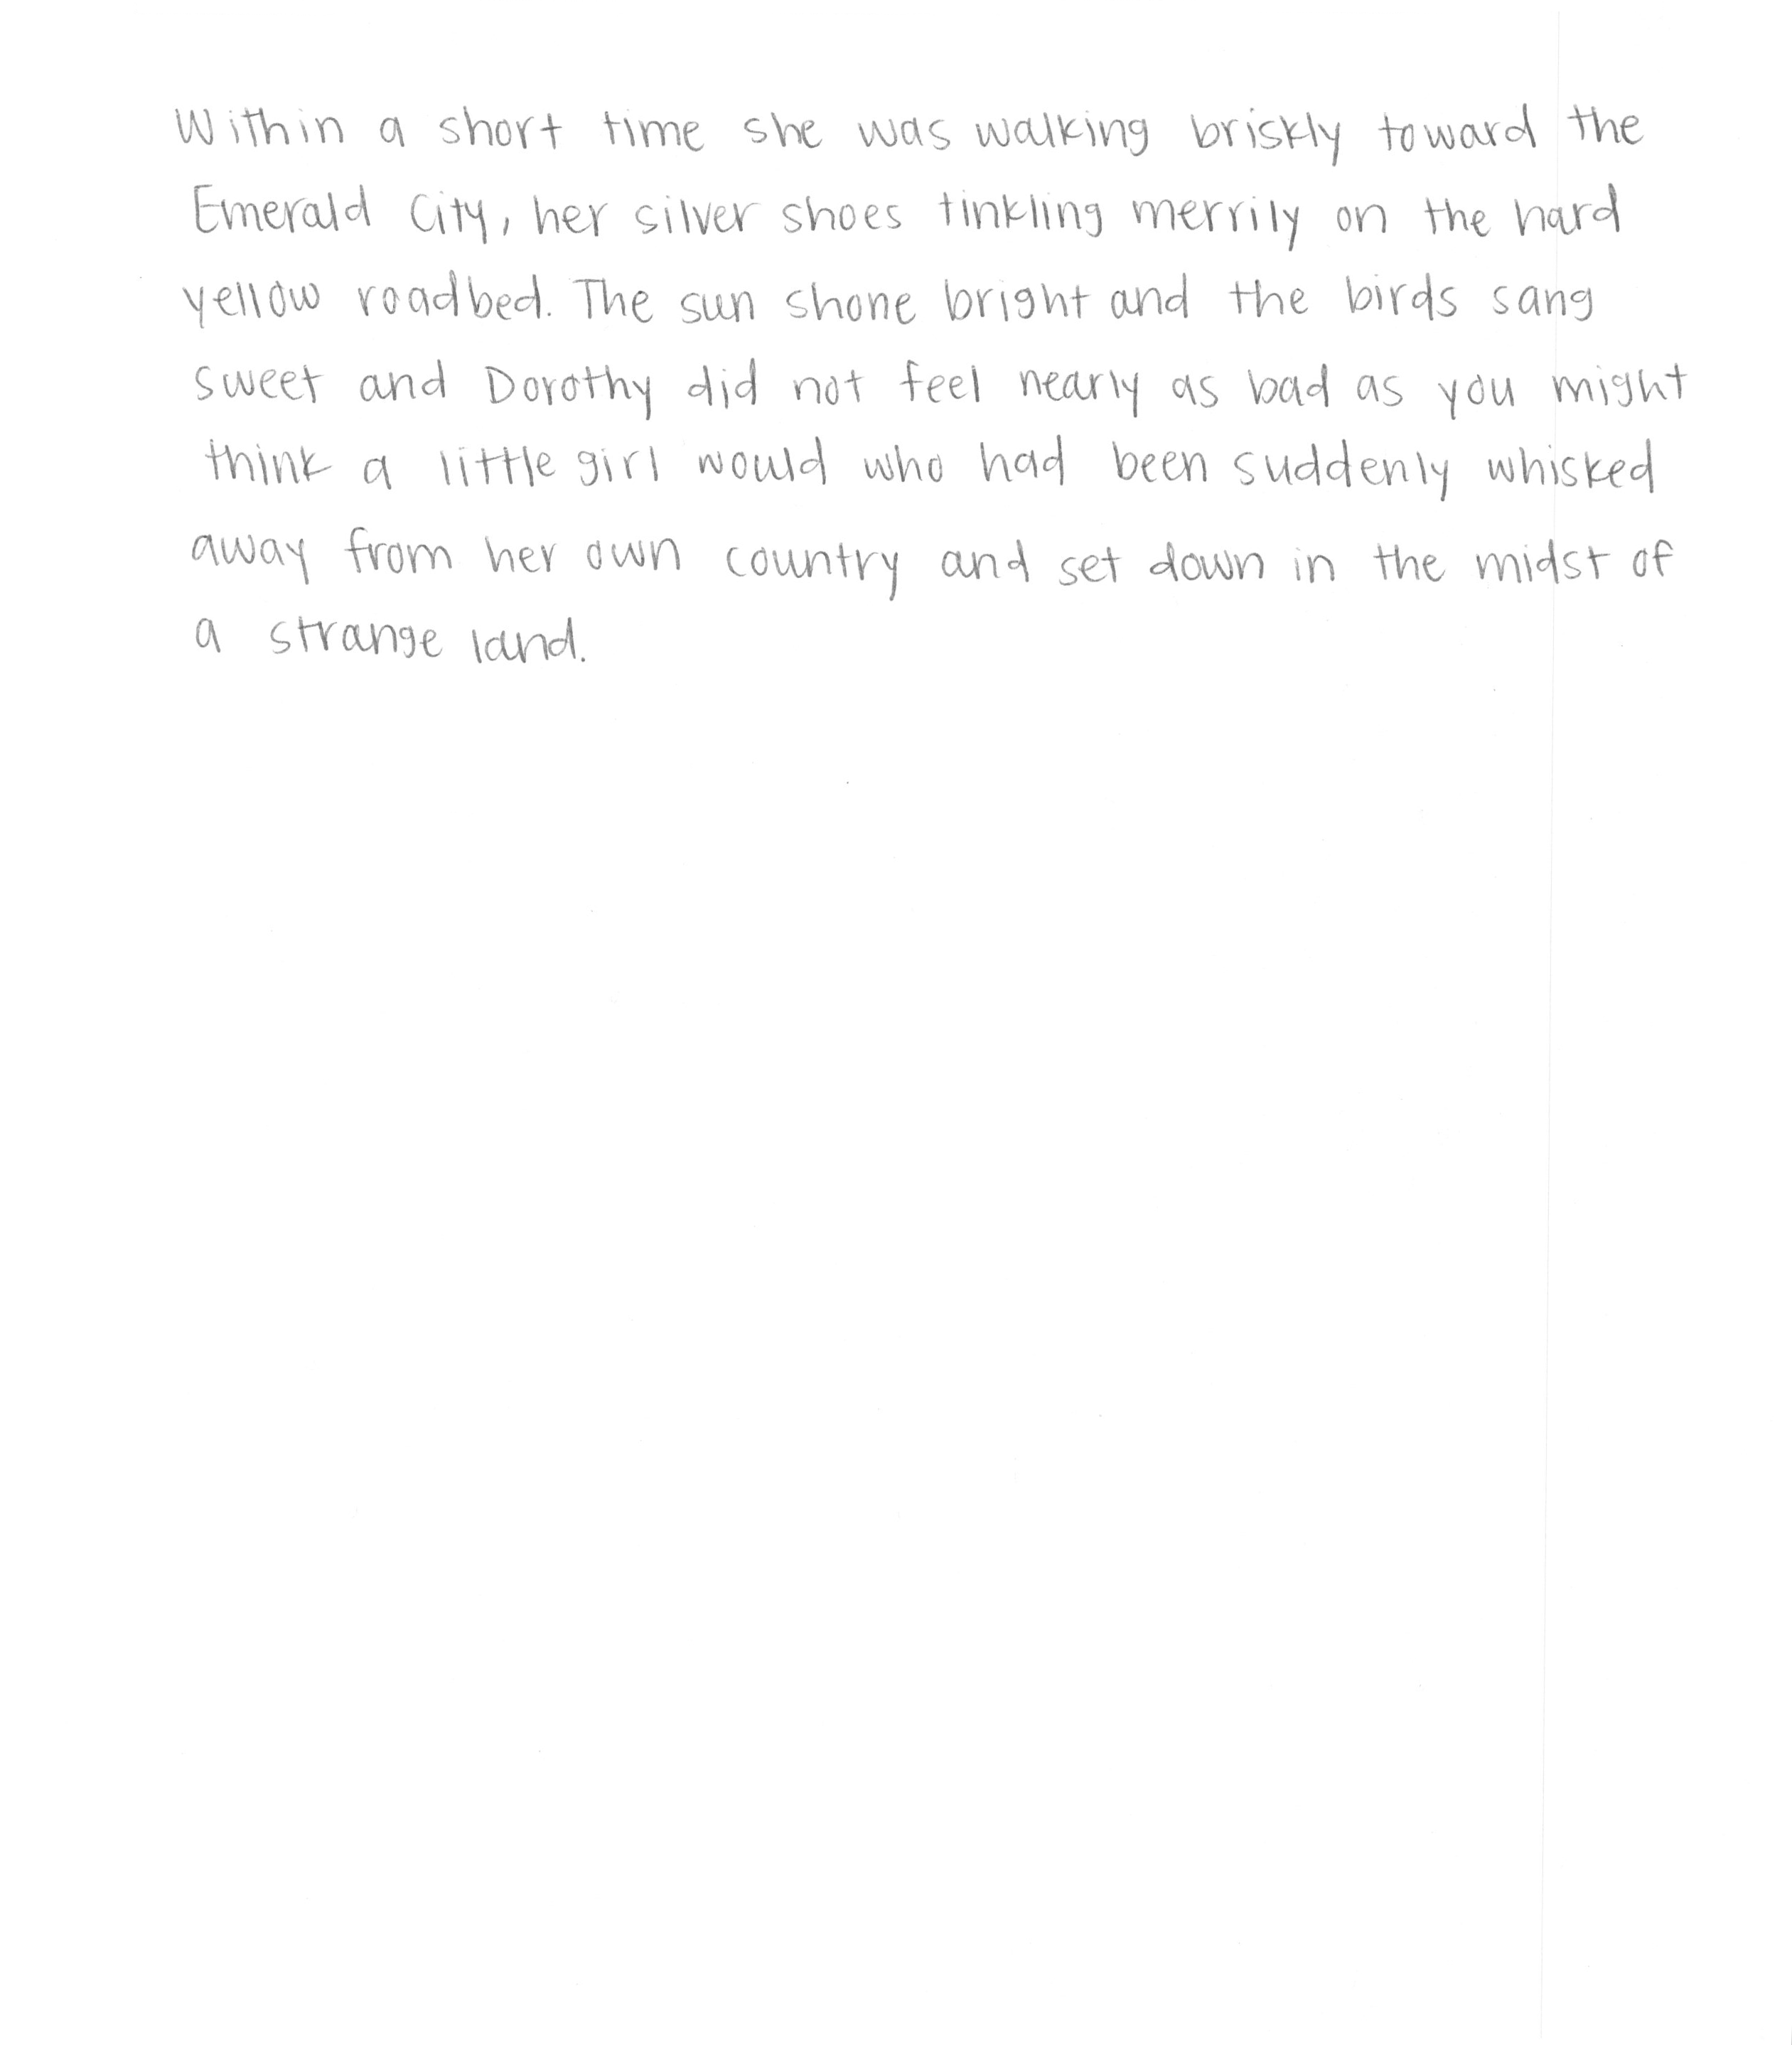 Within a short time she was walking briskly toward the
Emerald City, her silver shoes tinkling merrily on the hard
yellow roadbed. The sun shone bright and the birds sang
sweet and Dorothy did not feel nearly as bad as you might
think a little girl would who had been suddenly whisked
away from her own country and set down in the midst of
a strange land.